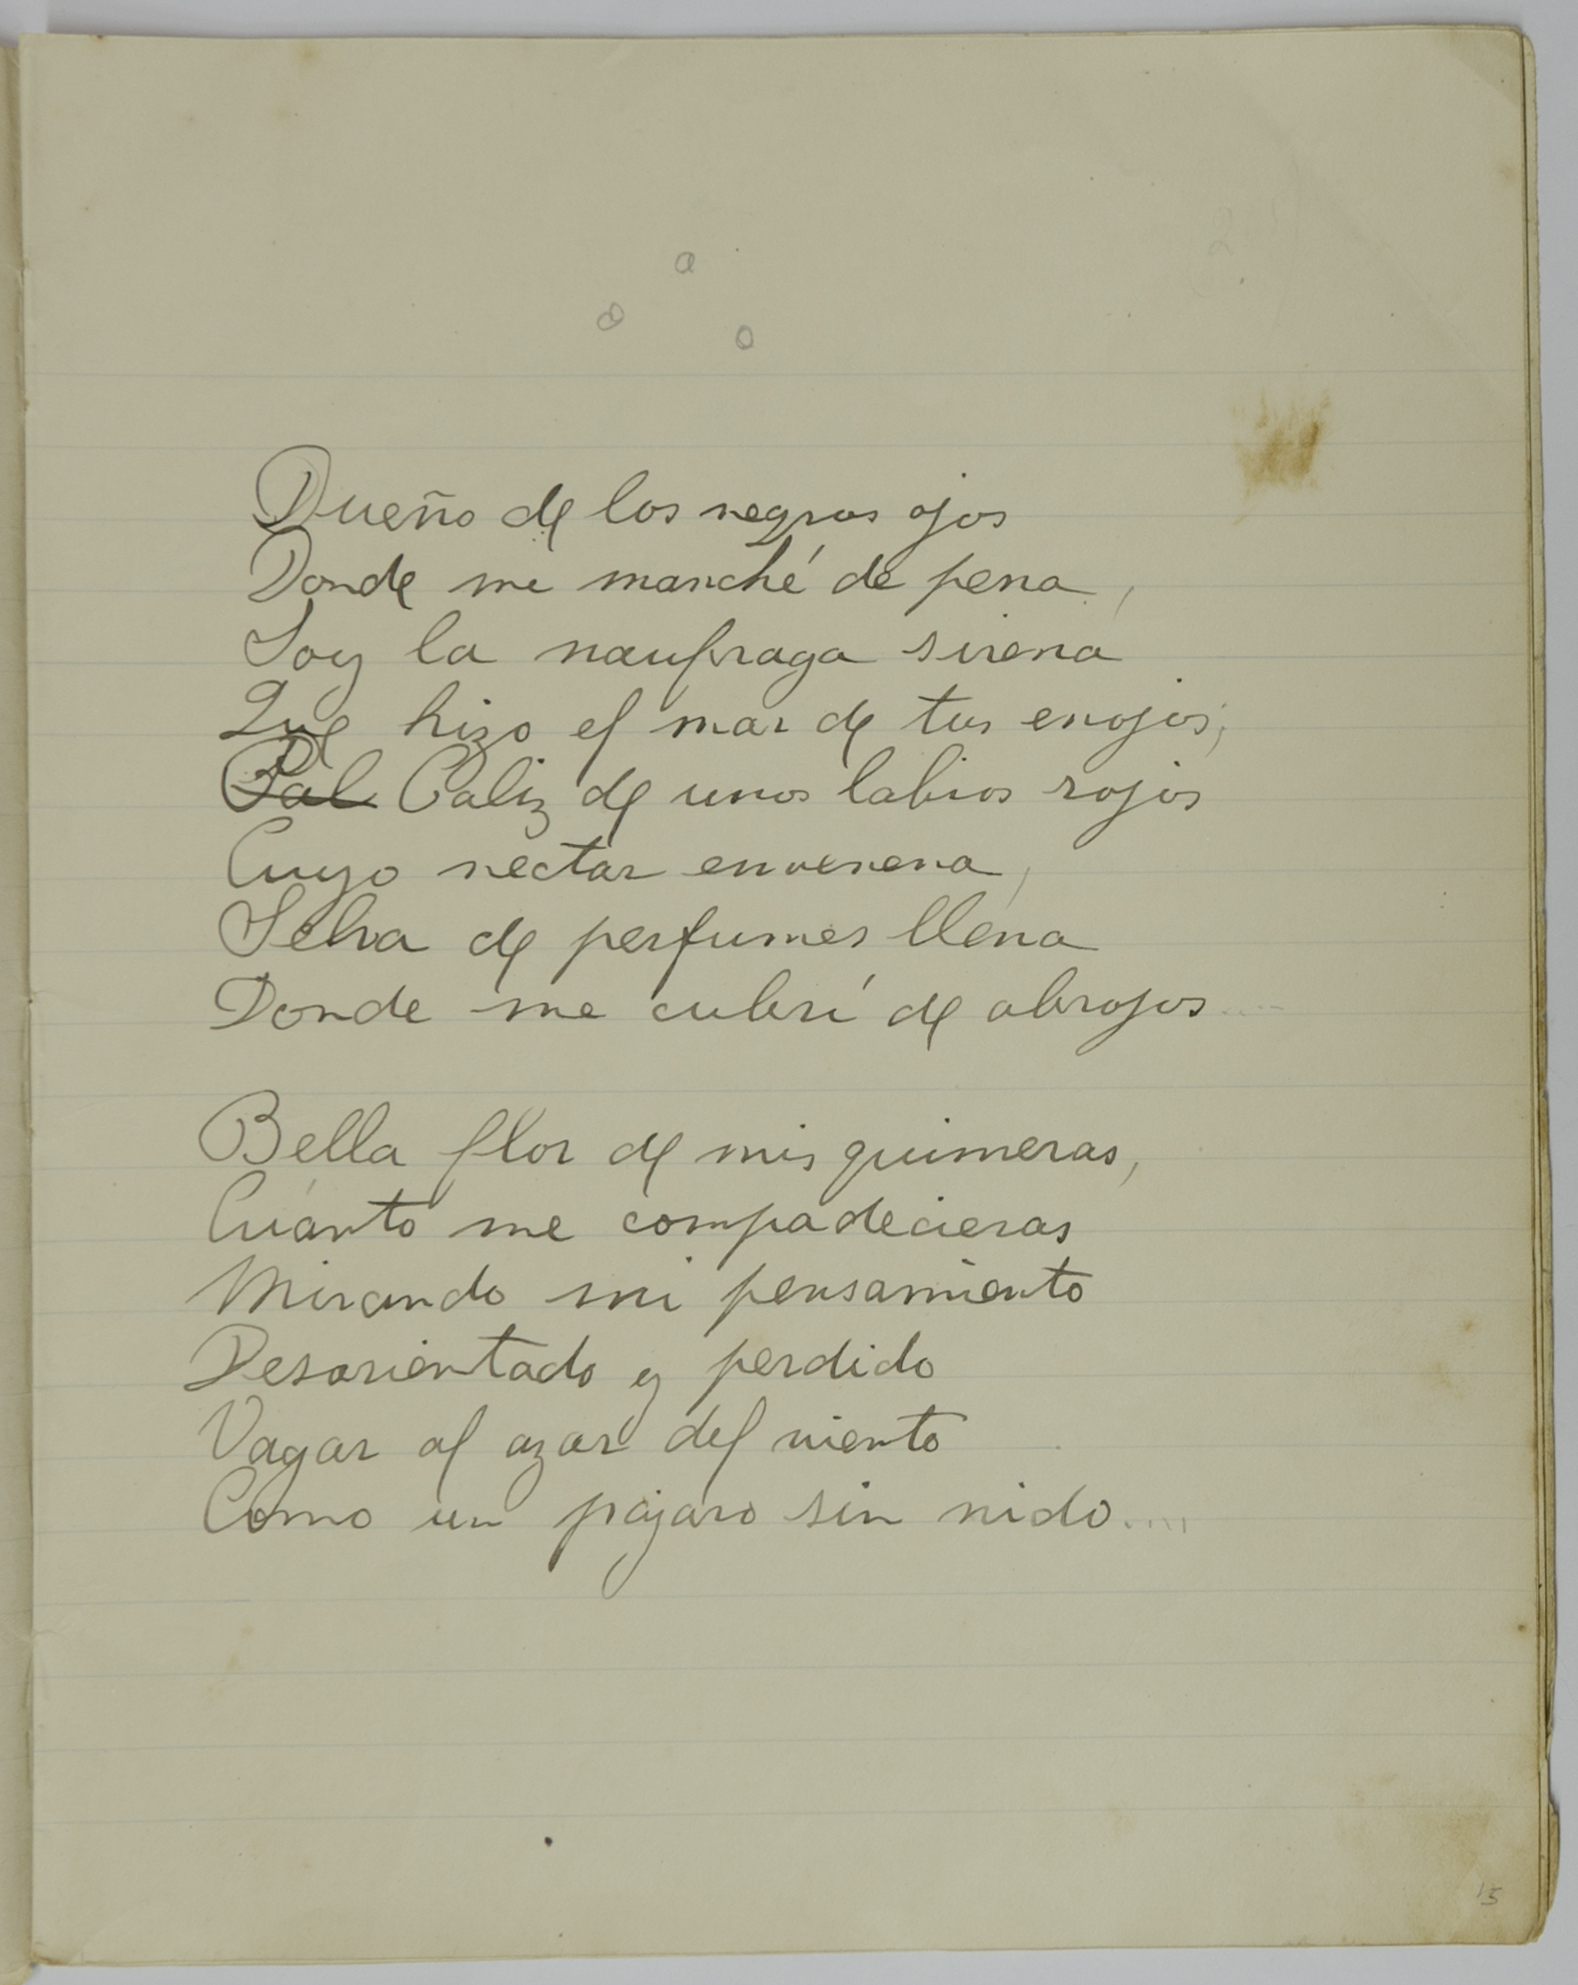 Dueño de los negros ojos
Donde me manché de pena,
Soy la naufraga sirena
Que hizo el mar de tus enojos;
Caliz de unos labios rojos
Cuyo nectar envenena,
Selva de perfumes llena
Donde me cubrí de abrojos....
Bella flor de mis quimeras,
Cuánto me compadecieras
Mirando mi pensamiento
Desorientado y perdido
Vagar al azar del viento
Como un pájaro sin nido....
15